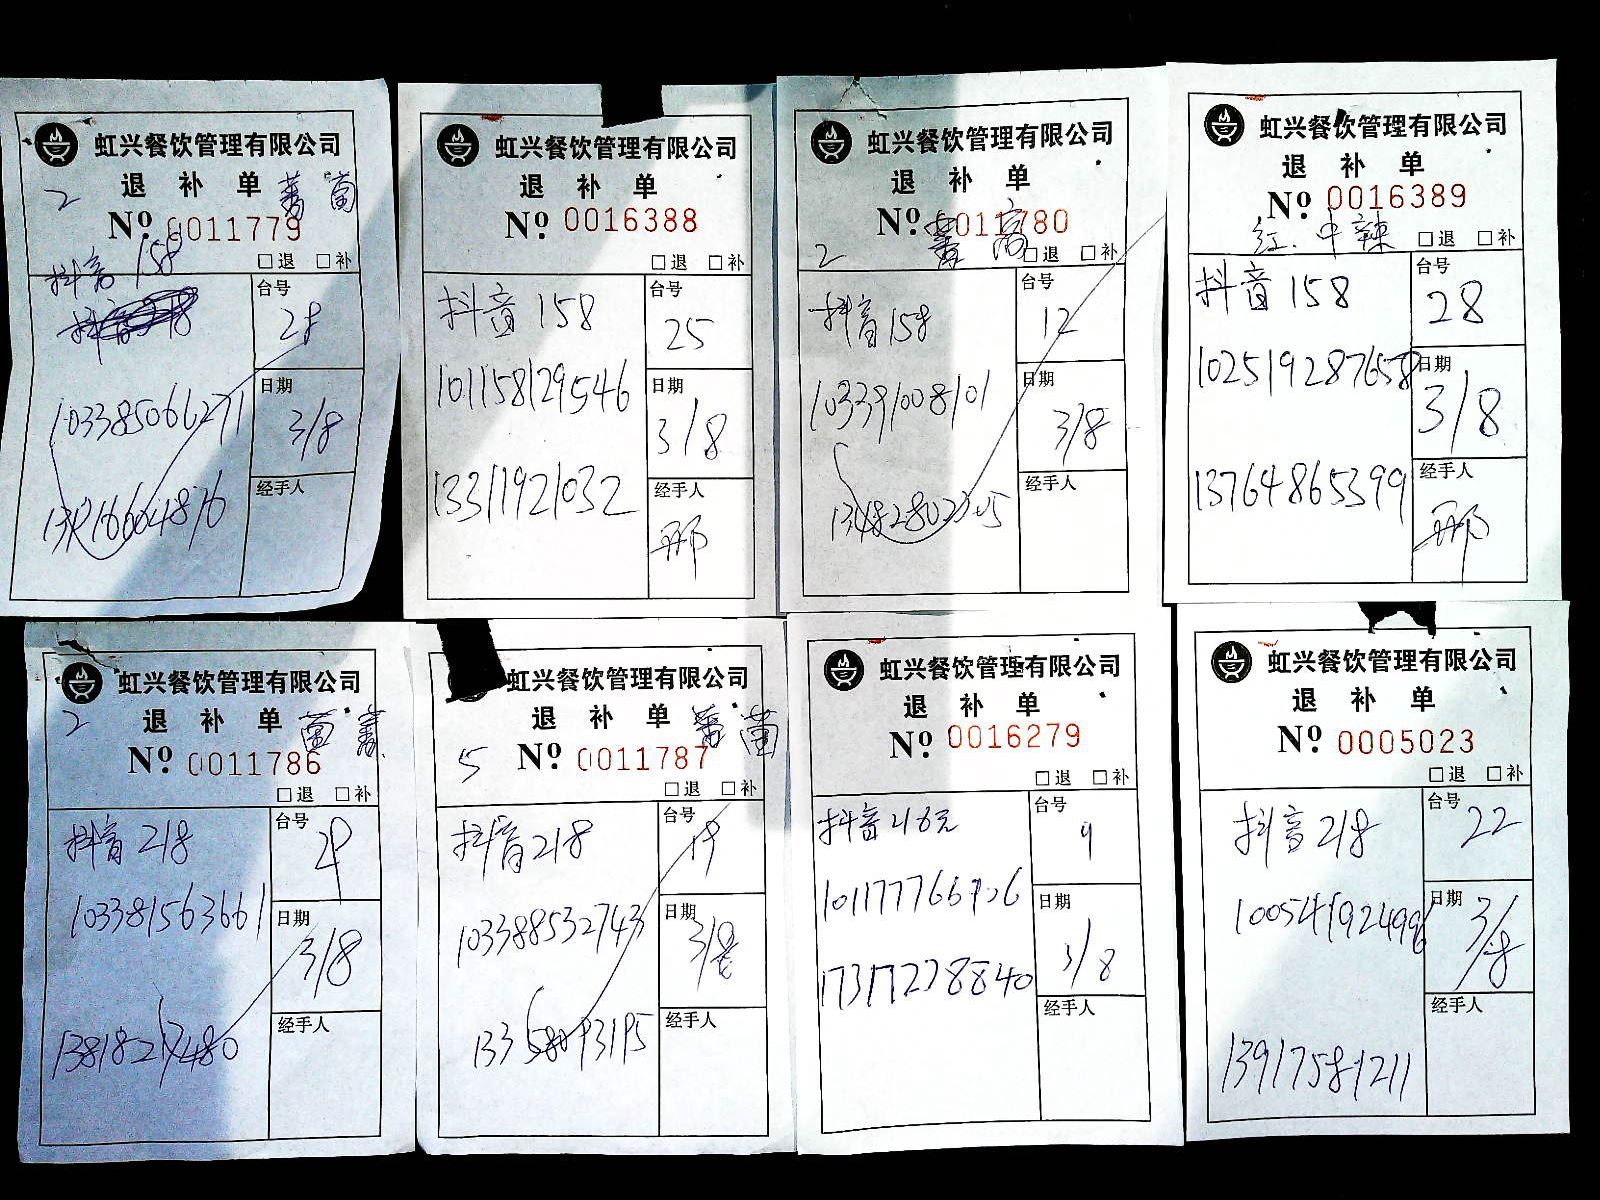 虹兴餐饮管理有限公司
退补单
2
№ 0011779
抖音 158
□退 □补
台号
28
103385066271
日期
3/8
经手人
虹兴餐饮管理有限公司
退补单
№ 0016388
□退 □补
抖音 158
台号
25
101158129546
日期
3/8
13311921032
经手人
邢
虹兴餐饮管理有限公司
退补单
№ 0011780
2
□退 □补
抖音 158
台号
12
103391008101
日期
3/8
经手人
虹兴餐饮管理有限公司
退补单
№ 0016389
红.中辣 □退 □补
抖音 158
台号
28
102519287658
日期
3/8
13764865399
经手人
邢
虹兴餐饮管理有限公司
2
退补单
№ 0011786
□退 □补
抖音 218
台号
29
103381563661
日期
3/8
经手人
虹兴餐饮管理有限公司
退补单
5
№ 0011787
□退 □补
抖音 218
台号
19
103388532743
日期
3/8
经手人
虹兴餐饮管理有限公司
退补单
№ 0016279
□退 □补
抖音 218元
台号
9
日期
3/8
17317278840
经手人
虹兴餐饮管理有限公司
退补单
№ 0005023
□退 □补
抖音 218
台号
22
日期
3/8
经手人
13917581211